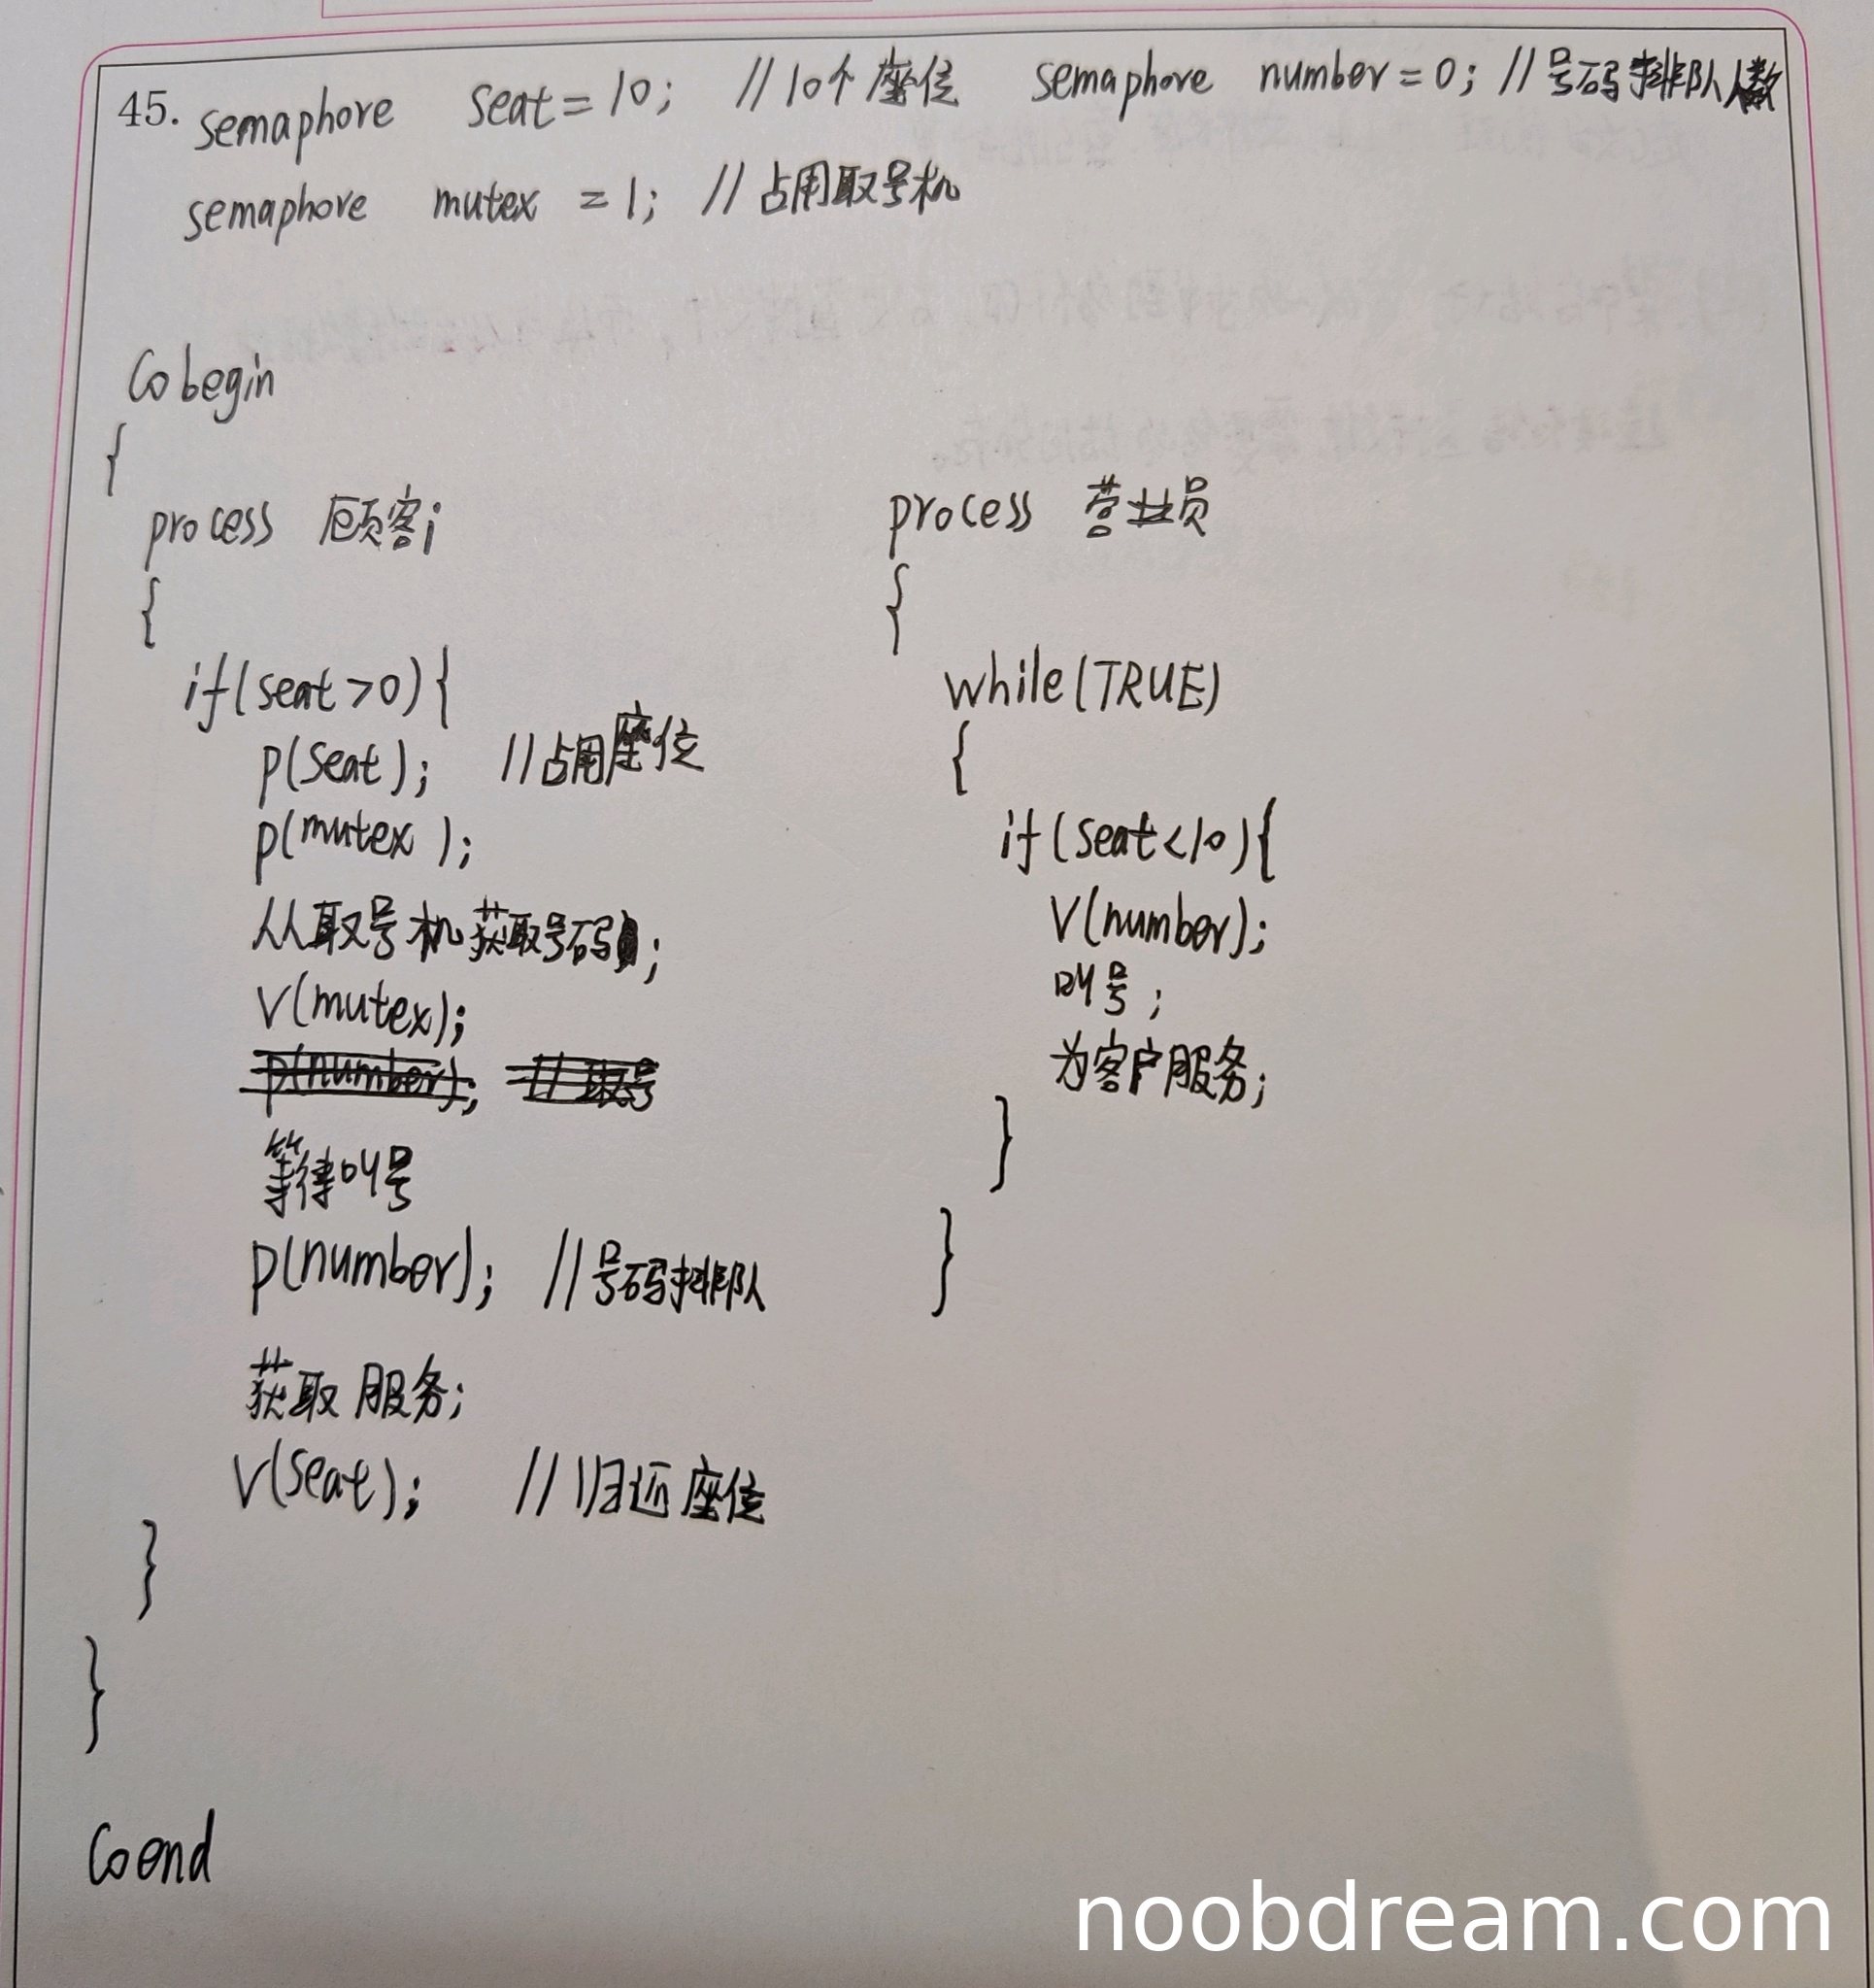 45. semaphore seat = 10; //10个座位 semaphore number = 0; //号码排队人数
semaphore mutex = 1; //占用取号机
Cobegin
{
process 顾客i
{
if(seat>0){
p(seat); //占用座位
p(mutex);
从取号机获取号码;
V(mutex);
p(number); //取号
等待叫号
p(number); //号码排队
获取服务;
V(seat); //归还座位
}
}
process 营业员
{
while(TRUE)
{
if(seat<10){
V(number);
叫号;
为客户服务;
}
}
Coend
noobdream.com